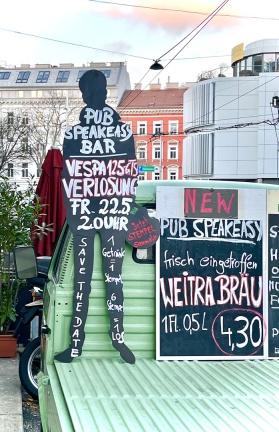 PUB
SPEAKEASY
BAR
VESPA 125 GTS
VERLOSUNG
FR. 22.5
20UHR
SAVE THE DATE
Getränk
1
Stempel
6
Stempel
= 1
LOS
Jetzt
STEMPEL
Sammeln
NEW
PUB SPEAKEASY
frisch eingetroffen
WEITRABRÄU
1Fl. 0,5L 4,30